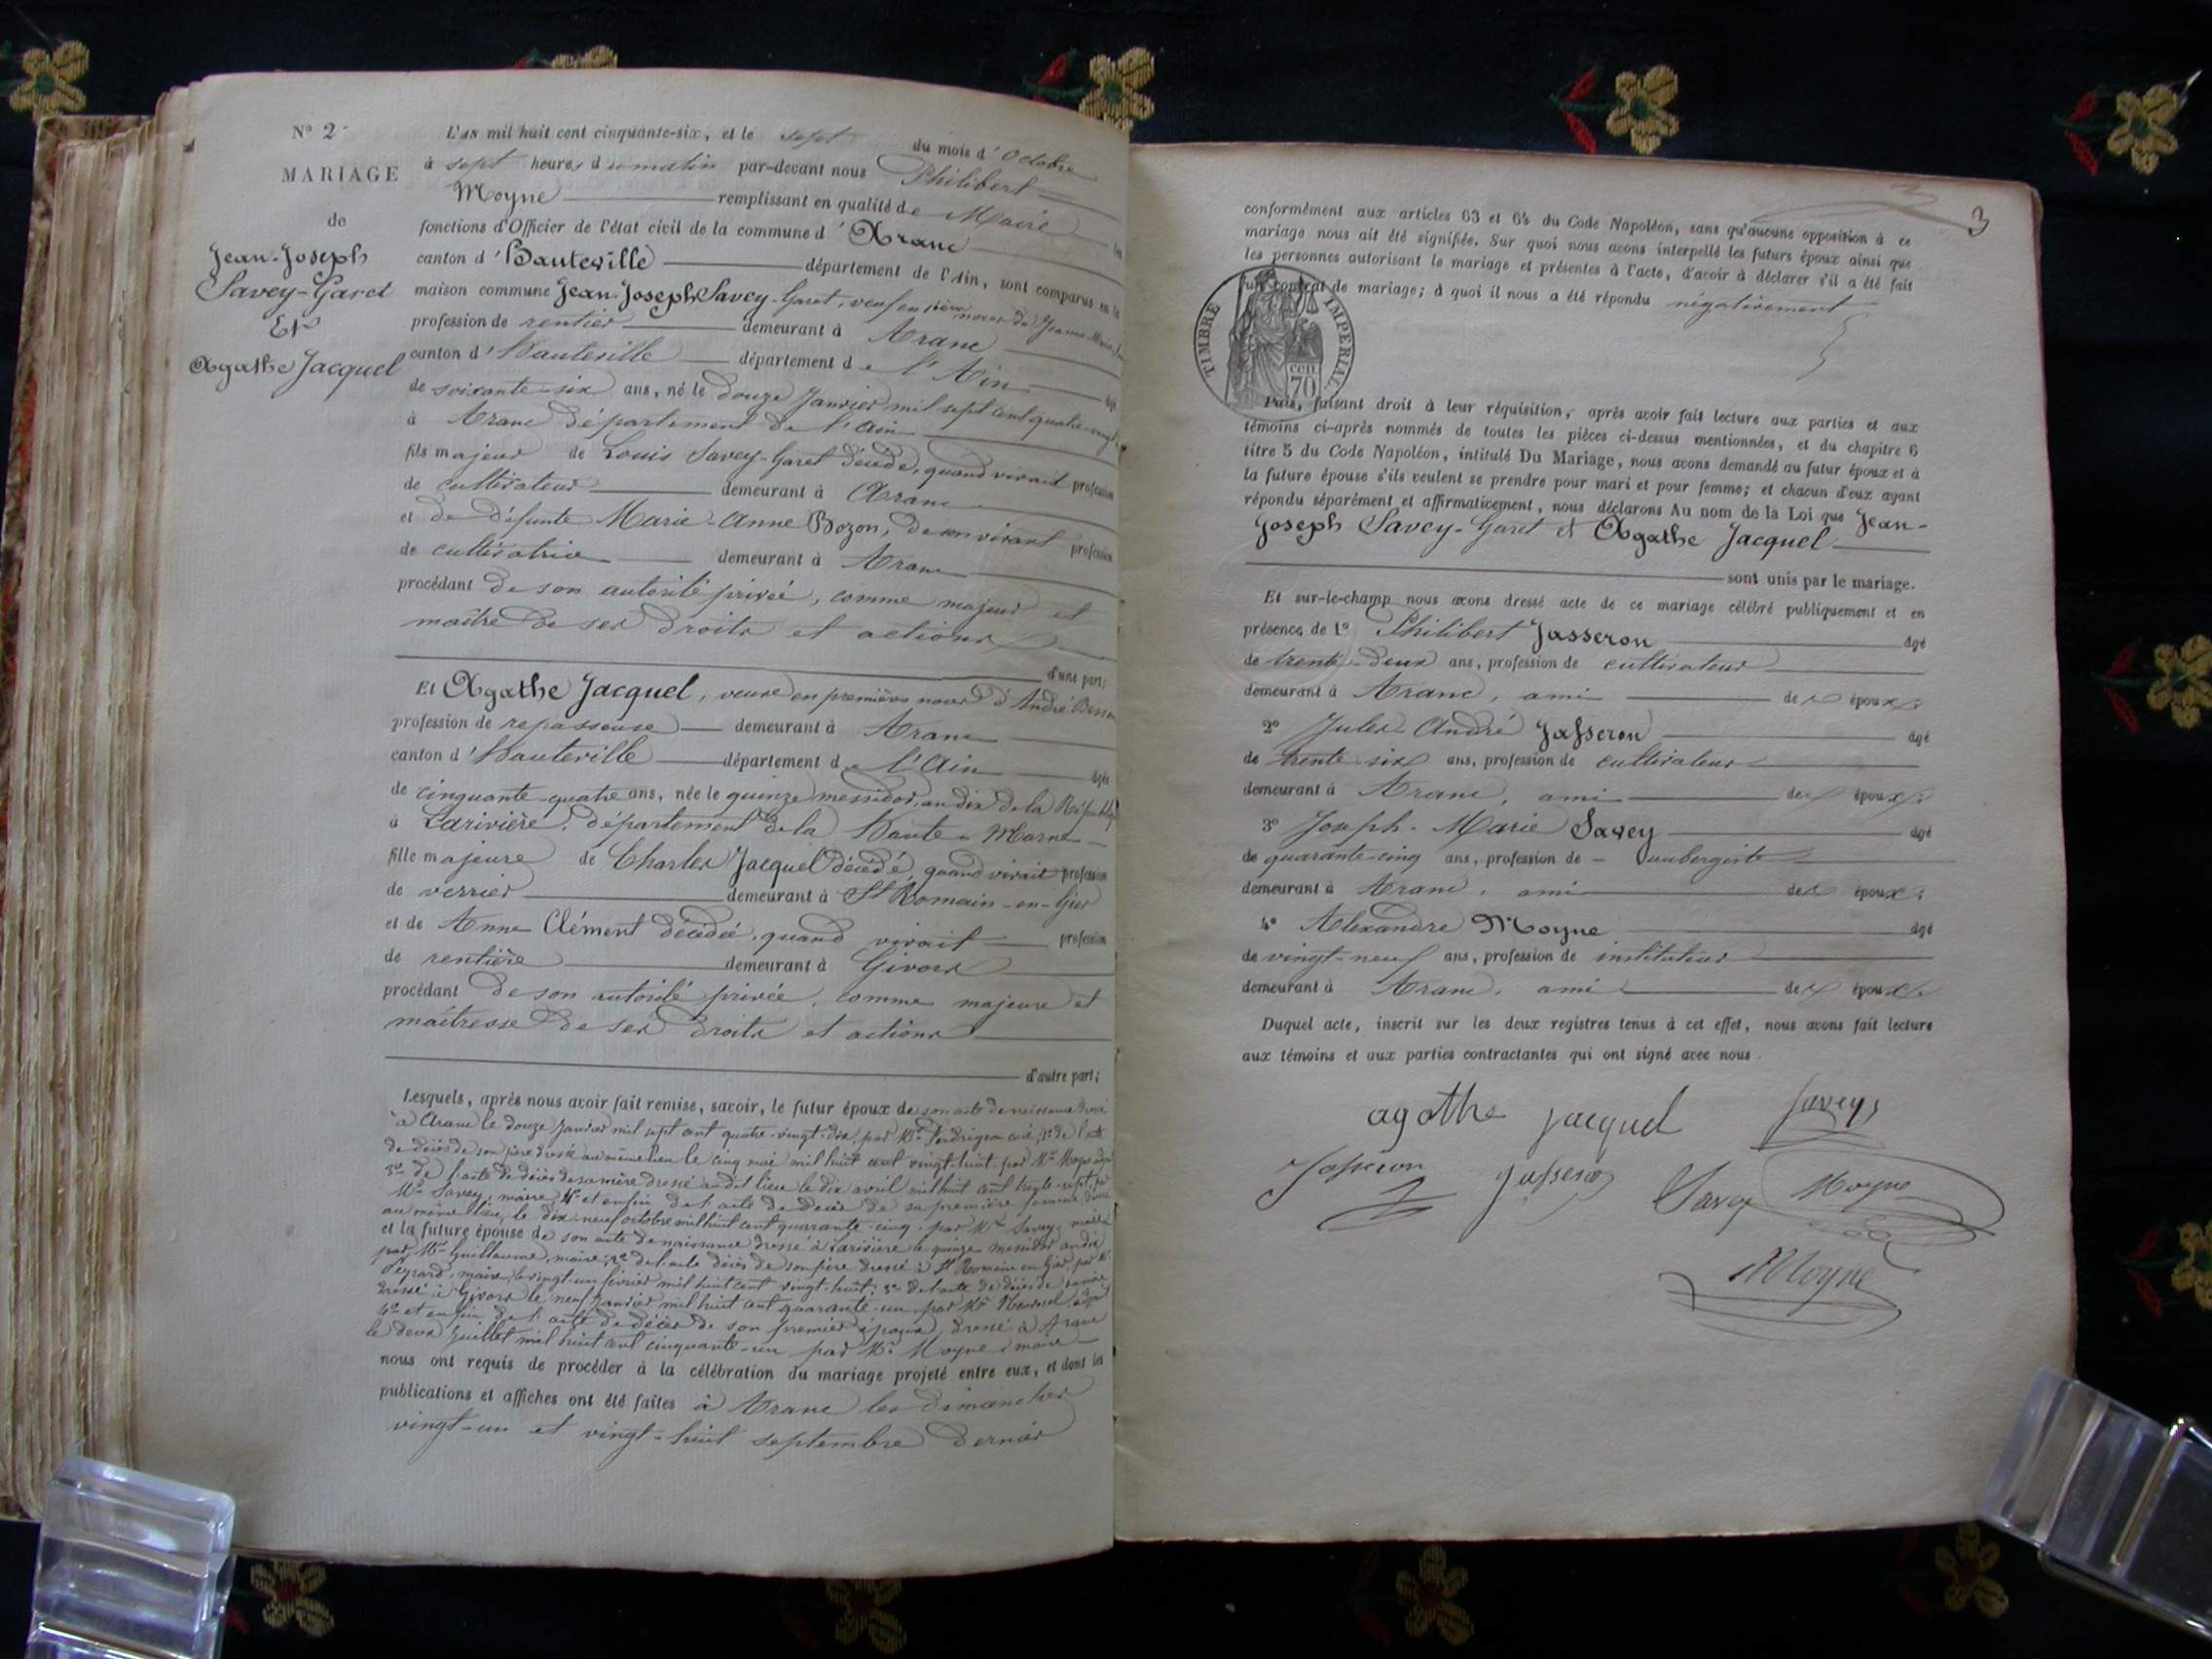 Nº 2
MARIAGE
de
Jean-Joseph
Savey-Garet
Et
Agathe Jacquel
L'AN mil huit cent cinquante-six, et le sept du mois d'Octobre
à sept heures du matin par-devant nous Philibert
Moyne remplissant en qualité de Maire les
fonctions d'Officier de l'état civil de la commune d'Aranc
canton d'Hauteville département de l'Ain, sont comparus en la
maison commune Jean-Joseph Savey-Garet, veuf en noces de Jeanne Marie
profession de rentier demeurant à Aranc
canton d'Hauteville département de l'Ain âgé
de soixante-six ans, né le douze Janvier mil sept cent quatre-vingt
à Aranc département de l'Ain
fils majeur de Louis Savey-Garet décédé, quand vivait profession
de cultivateur demeurant à Aranc
et de défunte Marie-Anne Bozon, de son vivant profession
de cultivatrice demeurant à Aranc
procédant de son autorité privée, comme majeur et
maître de ses droits et actions
d'une part;
Et Agathe Jacquel, veuve en premières noces d'André
profession de repasseuse demeurant à Aranc
canton d'Hauteville département de l'Ain âgée
de cinquante-quatre ans, née le quinze messidor, an dix de la République
à Larivière, département de la Haute-Marne
fille majeure de Charles Jacquel décédé, quand vivait profession
de verrier demeurant à St Romain-en-Gier
et de Anne Clément décédée, quand vivait profession
de rentière demeurant à Givors
procédant de son autorité privée, comme majeure et
maîtresse de ses droits et actions
d'autre part;
Lesquels, après nous avoir fait remise, savoir, le futur époux de son acte de naissance dressé
à Aranc le douze Janvier mil sept cent quatre-vingt-dix, par Mr curé, 2º de l'acte
de décès de son père dressé au même lieu le cinq mai mil huit cent vingt-huit par Mr Moyne
3º de l'acte de décès de sa mère dressé audit lieu le dix avril mil huit cent trente-sept, par
Mr Savey, maire, 4º et enfin de l'acte de décès de sa première femme, dressé
au même lieu, le dix-neuf octobre mil huit cent quarante-cinq, par Mr Savey, maire
et la future épouse de son acte de naissance dressé à Larivière le quinze messidor an dix
par Mr Guillaume, maire; 2º de l'acte décès de son père dressé à St Romain en Gier, par Mr
Peyrard, maire, le vingt-un février mil huit cent vingt-huit; 3º de l'acte de décès de sa mère
dressé à Givors le neuf Janvier mil huit cent quarante-un par Mr
4º et enfin de l'acte de décès de son premier époux, dressé à Aranc
le deux Juillet mil huit cent cinquante-un par Mr Moyne maire
nous ont requis de procéder à la célébration du mariage projeté entre eux, et dont les
publications et affiches ont été faites à Aranc les dimanches
vingt-un et vingt-huit septembre dernier
3
conformément aux articles 63 et 64 du Code Napoléon, sans qu'aucune opposition à ce
mariage nous ait été signifiée. Sur quoi nous avons interpellé les futurs époux ainsi que
les personnes autorisant le mariage et présentes à l'acte, d'avoir à déclarer s'il a été fait
un contrat de mariage; à quoi il nous a été répondu négativement
TIMBRE IMPERIAL
cen
70
Puis, faisant droit à leur réquisition, après avoir fait lecture aux parties et aux
témoins ci-après nommés de toutes les pièces ci-dessus mentionnées, et du chapitre 6
titre 5 du Code Napoléon, intitulé Du Mariage, nous avons demandé au futur époux et à
la future épouse s'ils veulent se prendre pour mari et pour femme; et chacun d'eux ayant
répondu séparément et affirmativement, nous déclarons Au nom de la Loi que Jean-
Joseph Savey-Garet et Agathe Jacquel
sont unis par le mariage.
Et sur-le-champ nous avons dressé acte de ce mariage célébré publiquement et en
présence de 1º Philibert Jasseron âgé
de trente-deux ans, profession de cultivateur
demeurant à Aranc, ami des époux;
2º Jules André Jasseron âgé
de trente six ans, profession de cultivateur
demeurant à Aranc, ami des époux;
3º Joseph-Marie Savey âgé
de quarante-cinq ans, profession de aubergiste
demeurant à Aranc, ami des époux;
4º Alexandre Moyne âgé
de vingt-neuf ans, profession de instituteur
demeurant à Aranc, ami des époux.
Duquel acte, inscrit sur les deux registres tenus à cet effet, nous avons fait lecture
aux témoins et aux parties contractantes qui ont signé avec nous.
agathe jacquel Savey
Jasseron Jasseron Savey Moyne
Moyne